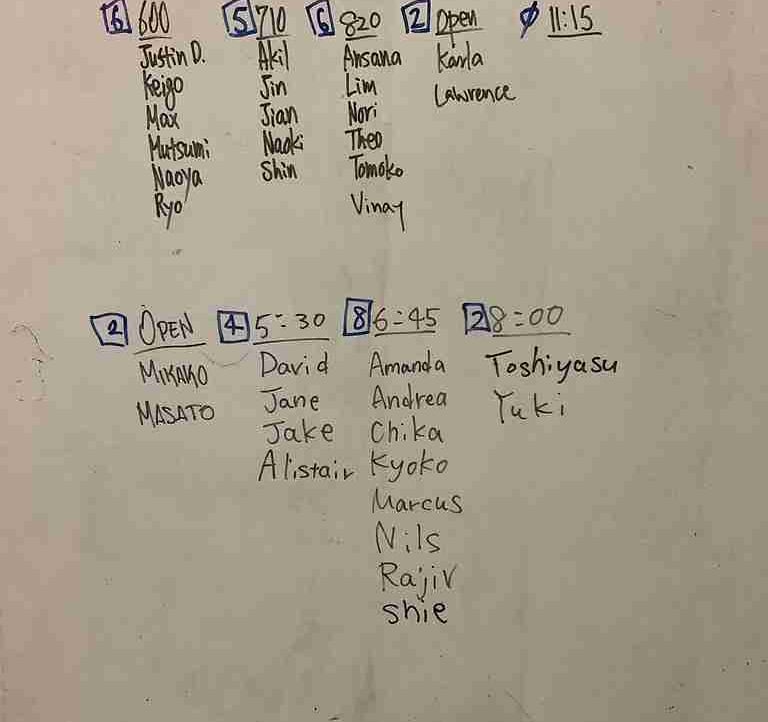 6 600 5 710 6 820 2 Open ∅ 11:15
Justin D. Akil Ansana Karla
Keigo Jin Lim Lawrence
Max Jian Nori
Mutsumi Naoki Theo
Naoya Shin Tomoko
Ryo Vinay
2 OPEN 4 5:30 8 6:45 2 8:00
MIKAKO David Amanda Toshiyasu
MASATO Jane Andrea Yuki
Jake Chika
Alistair Kyoko
Marcus
Nils
Rajiv
Shie